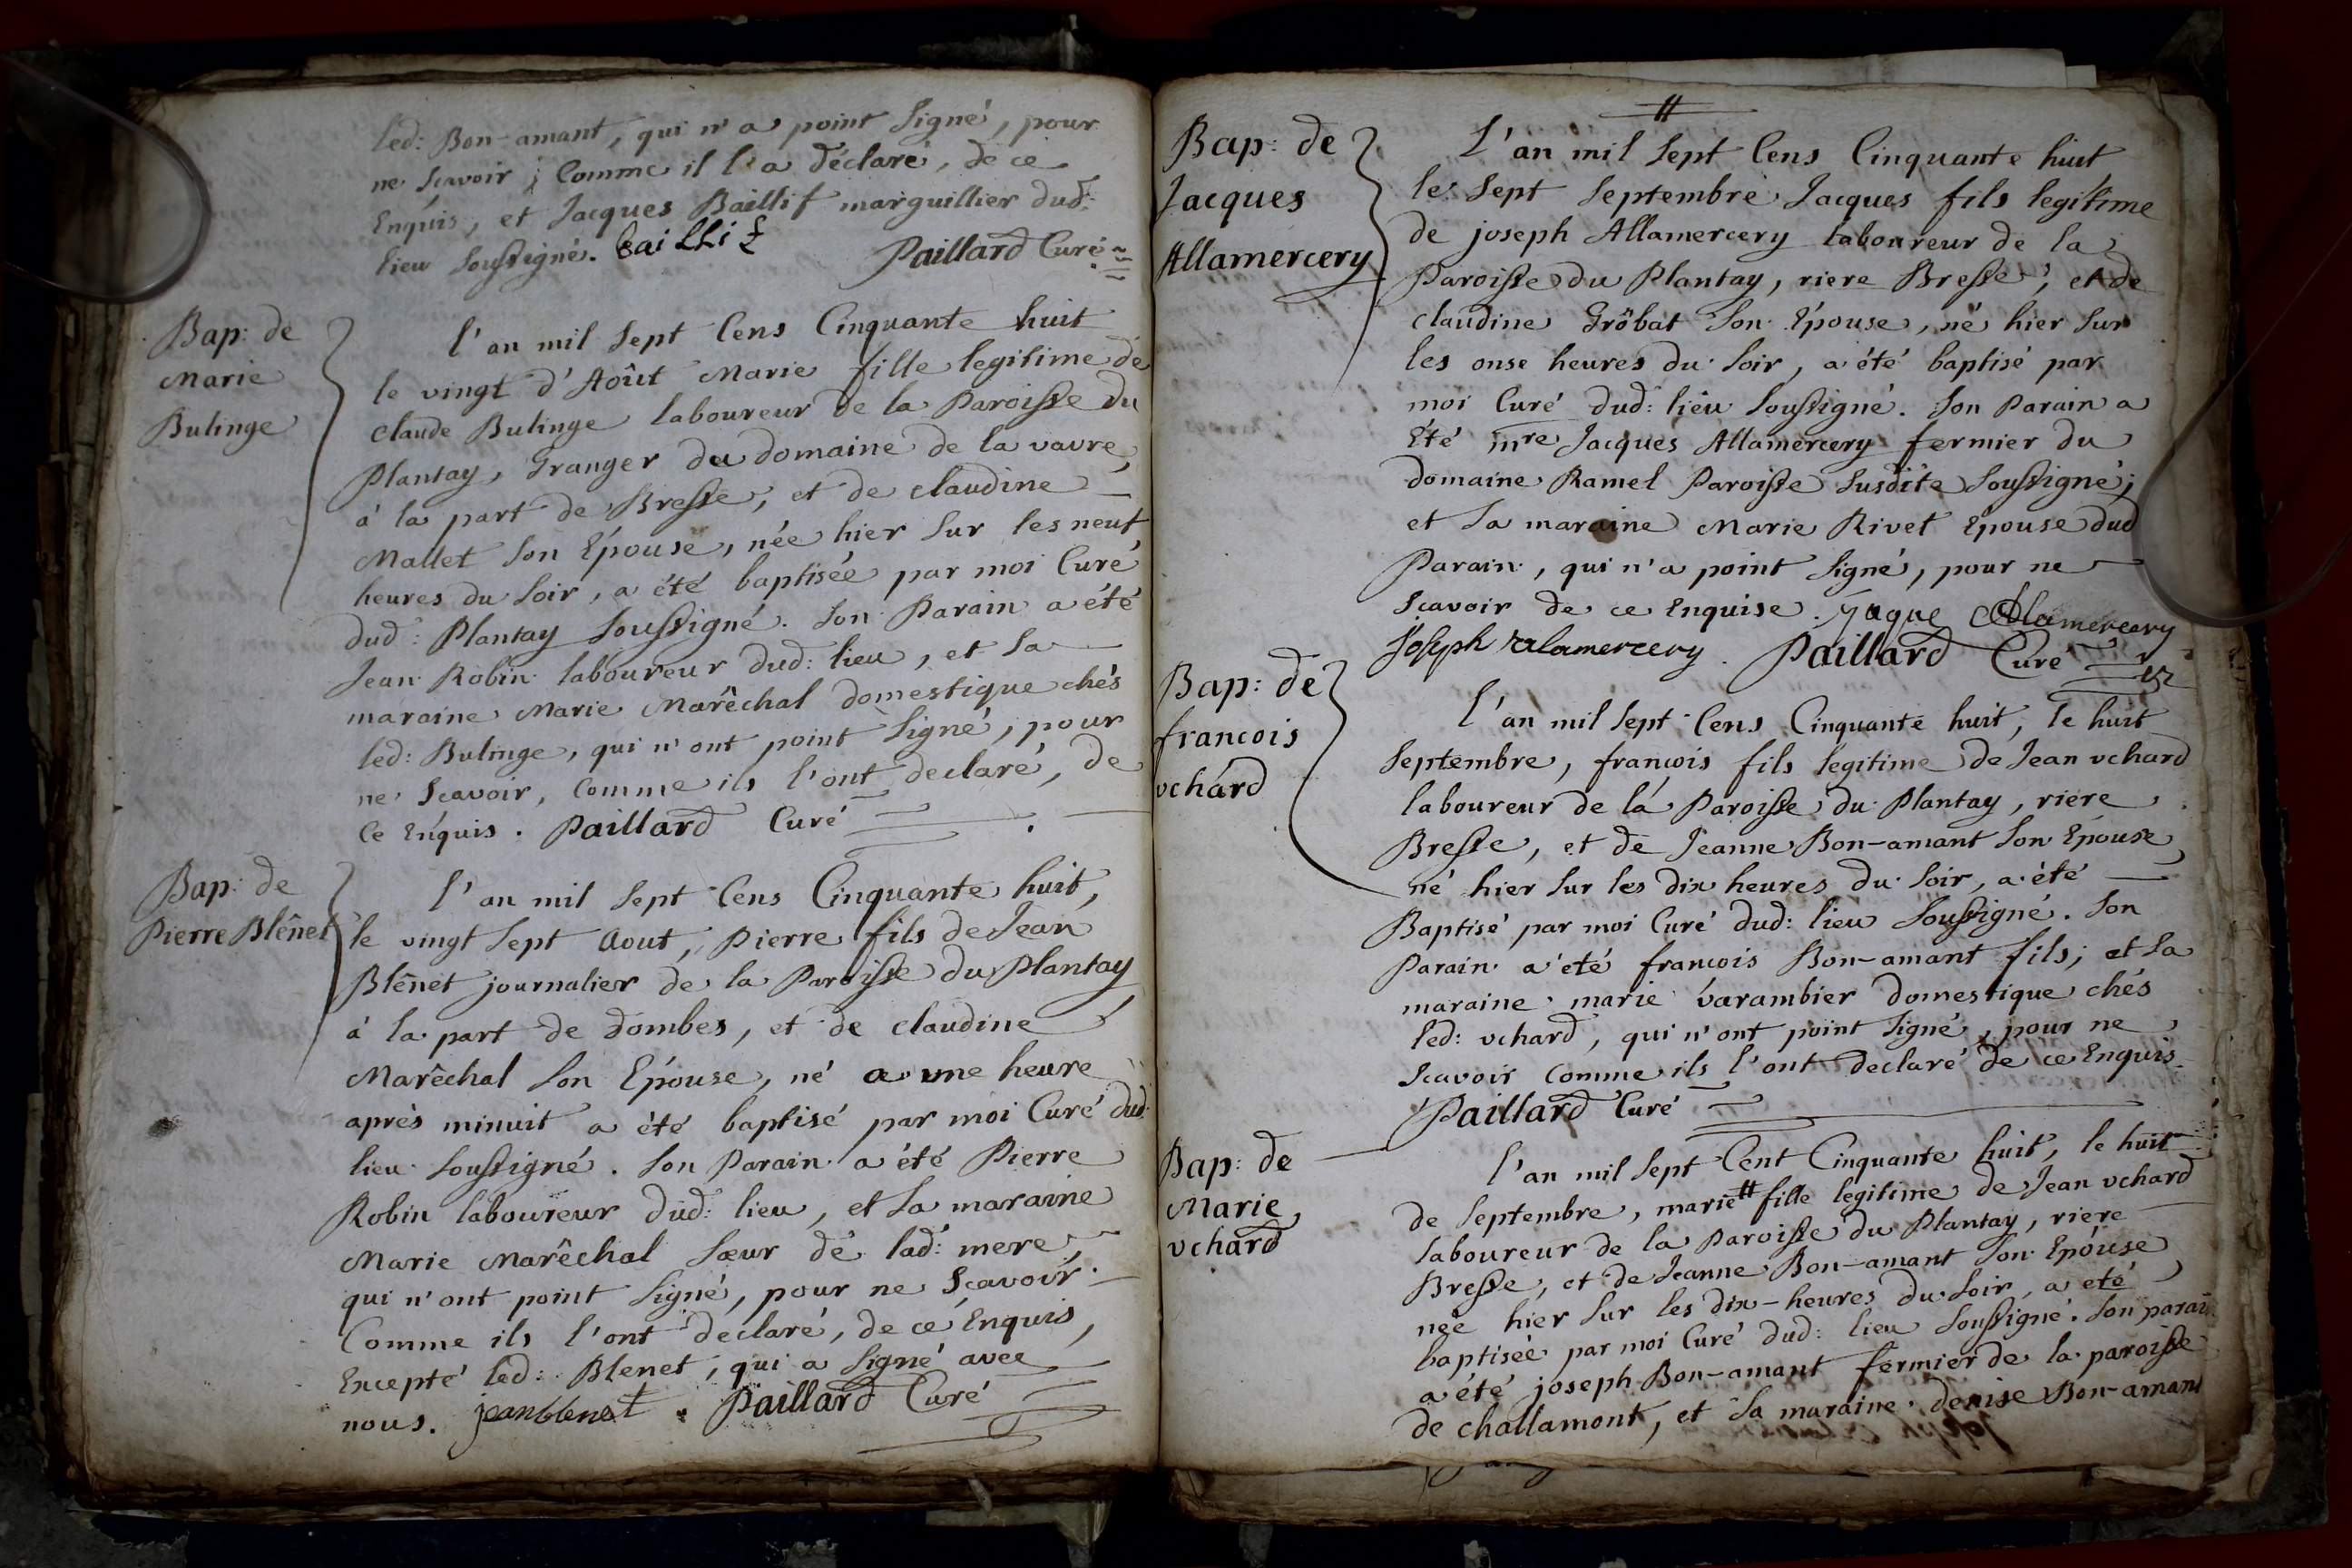 led: Bon-amant, qui n'a point signé, pour
ne sçavoir ; Comme il l'a déclaré, de ce
Enquis, et Jacques Baillif marguillier dud:
lieu soussigné. bailhif Paillard Curé
Bap: de
Marie
Bulinge
l'an mil sept Cens Cinquante huit
le vingt d'Août Marie fille legitime de
claude Bulinge laboureur de la Paroisse du
Plantay, Granger du domaine de la vavre,
à la part de Bresse, et de claudine
Mallet son Epouse, née hier sur les neuf
heures du soir, a été baptisée par moi Curé
dud: Plantay soussigné. Son Parain a été
Jean Robin laboureur dud: lieu, et sa
maraine Marie Marêchal domestique chés
led: Bulinge, qui n'ont point signé, pour
ne sçavoir, Comme ils l'ont declaré, de
Ce Enquis. Paillard Curé
Bap: de
Pierre Blênet
l'an mil sept Cens Cinquante huit,
le vingt sept Aout, Pierre fils de Jean
Blênet journalier de la Paroisse du Plantay
à la part de dombes, et de claudine
Marêchal son Epouse, né a une heure
après minuit a été baptisé par moi Curé dud:
lieu soussigné. Son Parain a été Pierre
Robin laboureur dud: lieu, et sa maraine
Marie Marêchal sœur de lad: mere,
qui n'ont point signé, pour ne sçavoir
Comme ils l'ont declaré, de ce Enquis,
Excepté led: Blenet, qui a signé avec
nous. jean blenet. Paillard Curé
Bap: de
Jacques
Allamercery
L'an mil sept Cens Cinquante huit
le sept septembre Jacques fils legitime
de joseph Allamercery laboureur de la
Paroisse du Plantay, riere Bresse, et de
claudine Grôbat son Epouse, né hier sur
les onse heures du soir, a été baptisé par
moi Curé dud: lieu soussigné. Son Parain a
Eté mre Jacques Allamercery fermier du
domaine Ramel Paroisse susdite soussigné;
et sa maraine Marie Rivet Epouse dud
Parain, qui n'a point signé, pour ne
sçavoir de ce Enquise. Jaque Alamercery
Joseph alamercery. Paillard Curé
Bap: de
francois
vchard
l'an mil sept Cens Cinquante huit, le huit
septembre, francois fils legitime de Jean vchard
laboureur de la Paroisse du Plantay, riere
Bresse, et de Jeanne Bon-amant son Epouse,
né hier sur les dix heures du soir, a été
Baptisé par moi Curé dud: lieu soussigné. Son
Parain a eté francois Bon-amant fils; et sa
maraine marie varambier domestique chés
led: vchard, qui n'ont point signé, pour ne
sçavoir Comme ils l'ont declaré de ce Enquis
Paillard Curé
Bap: de
Marie
vchard
l'an mil sept Cent Cinquante huit, le huit
de septembre, marie # fille legitime de Jean vchard
laboureur de la Paroisse du Plantay, riere
Bresse, et de Jeanne Bon-amant son Epouse,
née hier sur les dix-heures du soir, a eté
baptisée par moi Curé dud: lieu soussigné. Son parain
a été joseph Bon-amant fermier de la paroisse
de challamont, et sa maraine denise Bon-amant